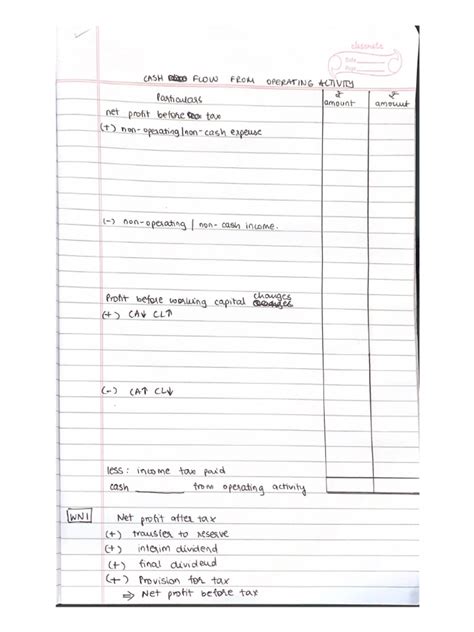 classmate
Date
Page
CASH FLOW FROM OPERATING ACTIVITY
Particulars ₹ amount ₹ amount
net profit before tax
(+) non-operating/non-cash expense
(-) non-operating / non-cash income.
Profit before working capital changes
(+) CA↓ CL↑
(-) CA↑ CL↓
less: income tax paid
cash ________ from operating activity
WN1 Net profit after tax
(+) transfer to reserve
(+) interim dividend
(+) final dividend
(+) Provision for tax
⇒ Net profit before tax